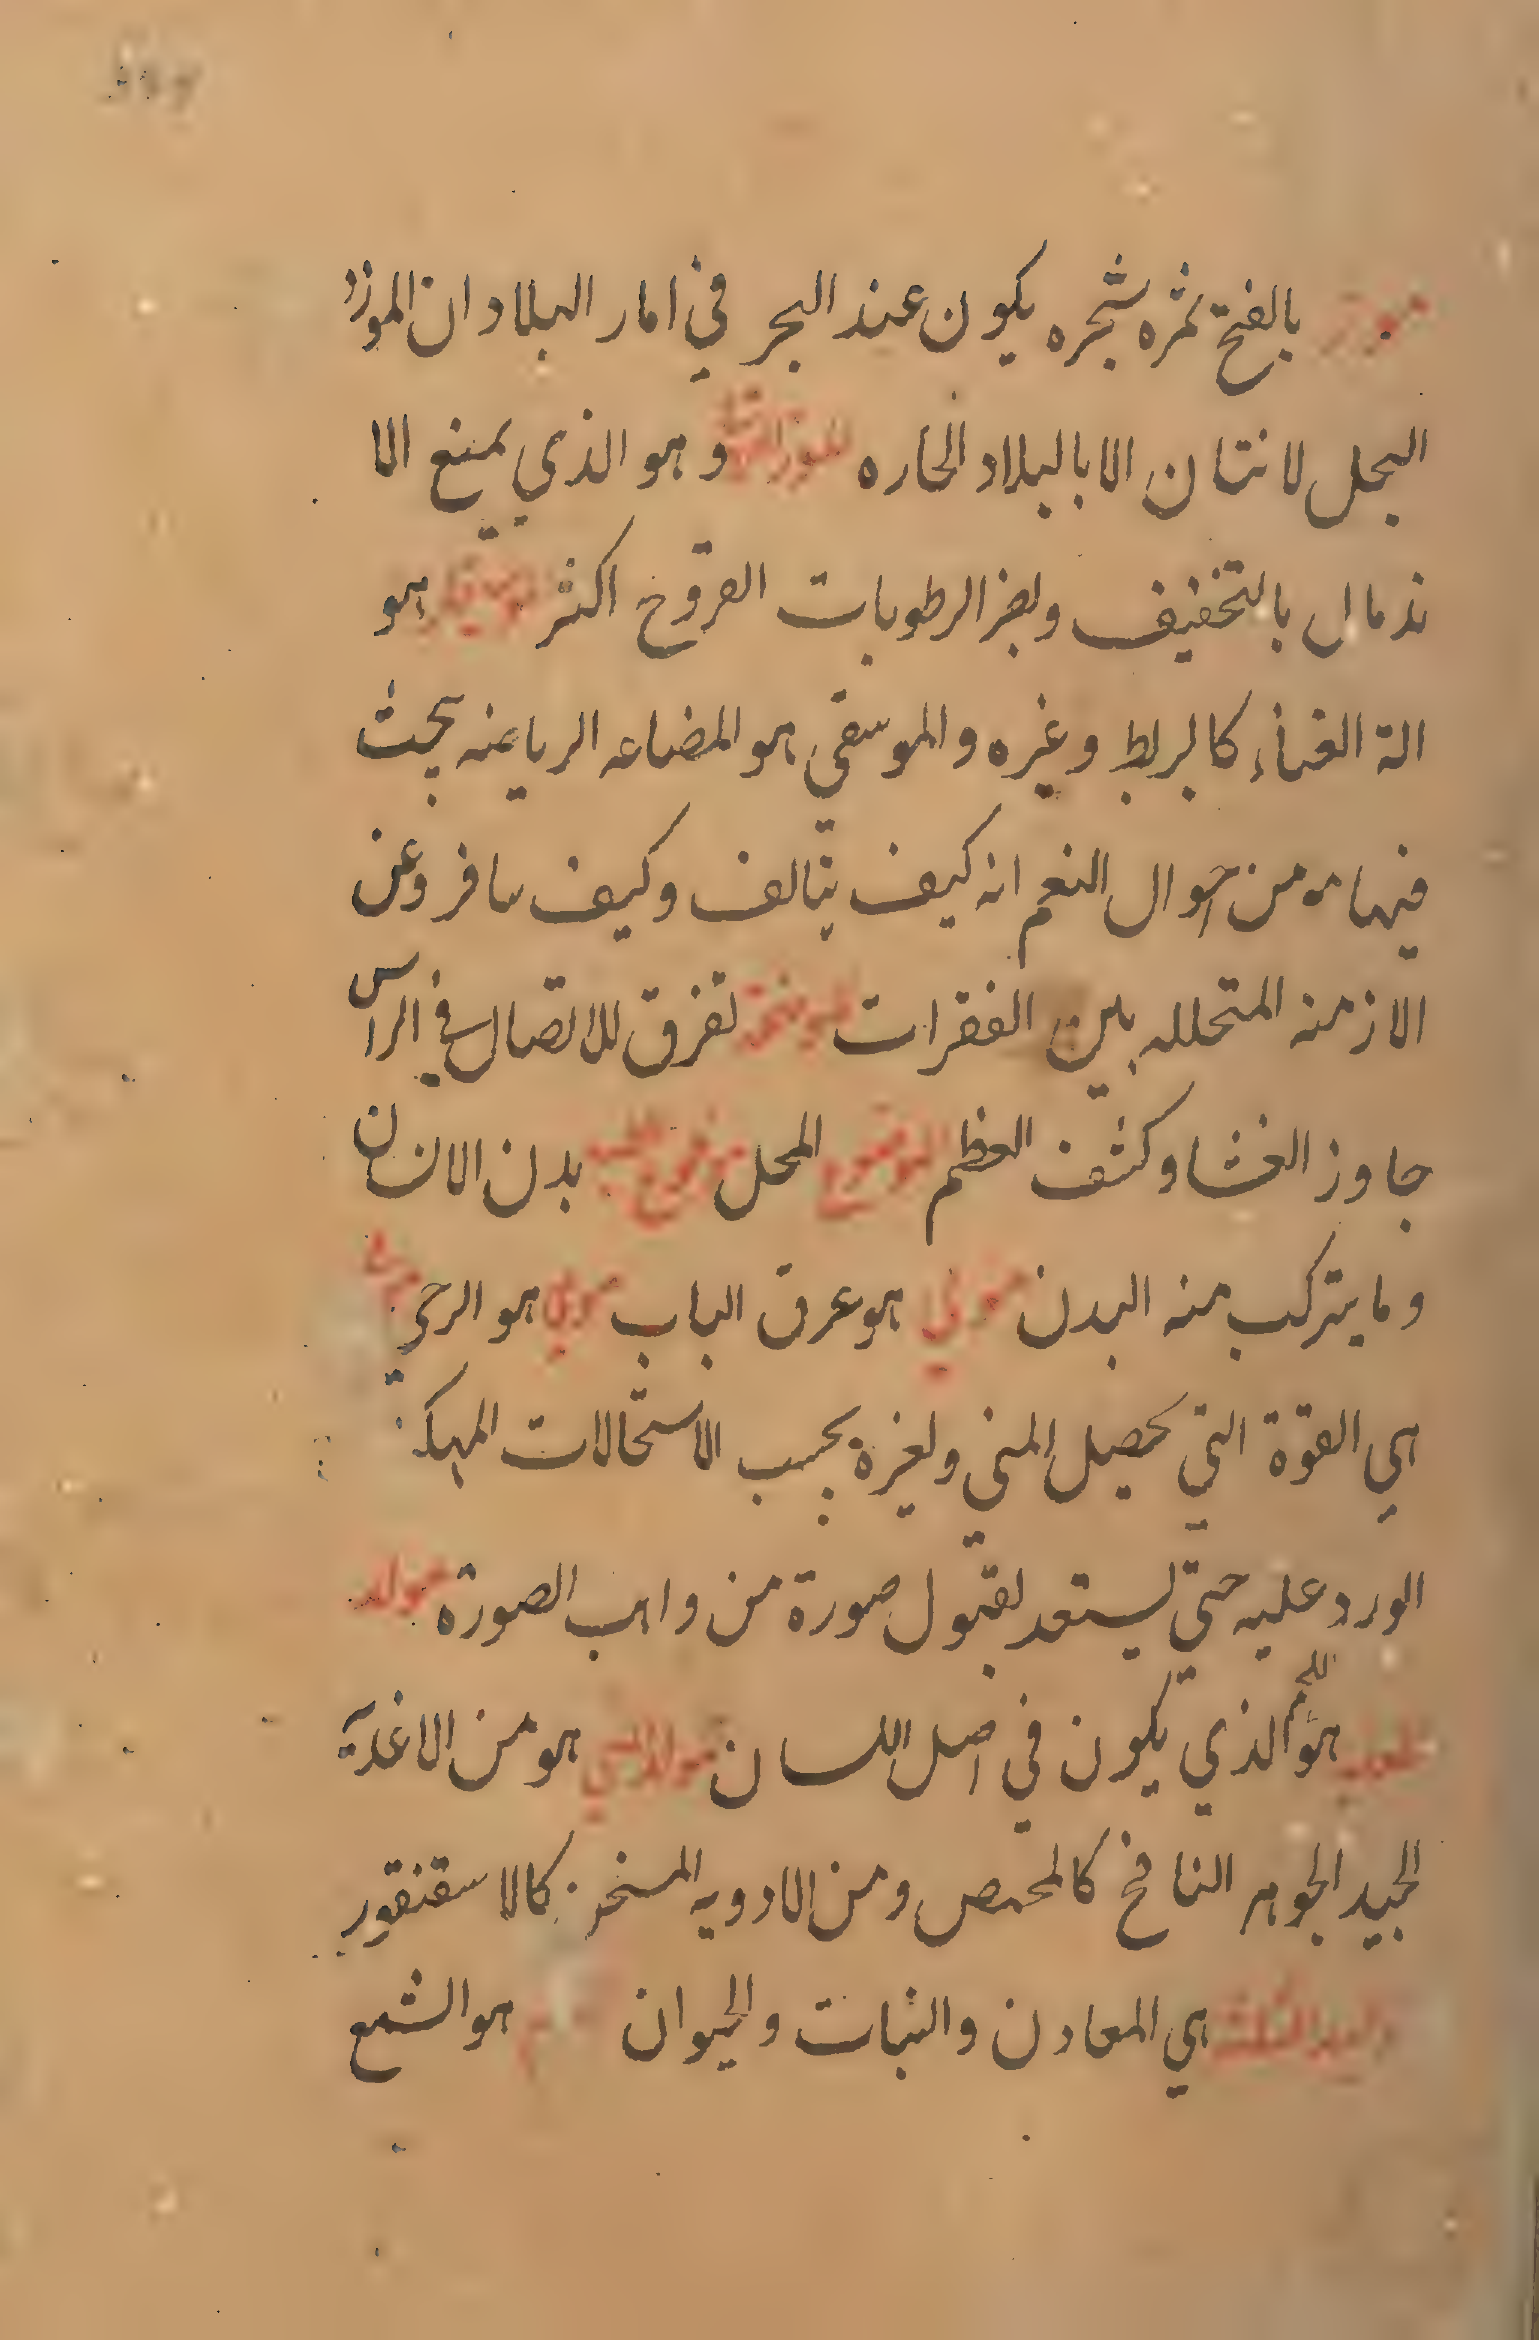 موز بالفتح ثمره شجره يكون عند البحر في امار البلاد ان الموز و
البجل لا نتان الا بالبلاد الحاره وهو الذي يمنع الا
ند مال بالتخفيف الرطوبات القروح اكثر موسيقي هو
الة الغناء كالبربط وغيره والموسقي هو المضاعه الرياضنه يبحث
فيها من احوال النغم انه كيف يتالف وكيف سافر وعن
الازمنه المتحلله بين الفقرات موضحة تفرق للاتصال في الراس
جاوز الغشا وكشف العظم الموضوع المحل موضوع الطب بدن الانسان
وما يتركب منه البدن هو عرق الباب هو الرحى
هي القوة التي تحصيل المنى ولغيره بحسب الاستحالات
الورد عليه حتى ليستعد لقبول صورة من واهب الصورة مولد
هو اللحم الذي يكون في اصل اللسان مولد المني هو من الاغذية
الجيد الجوهر النافخ كالحمص ومن الادويه المسخنه كالاسقنقور
مواليد الثلثة هي المعادن والنبات والحيوان موم هو الشمع